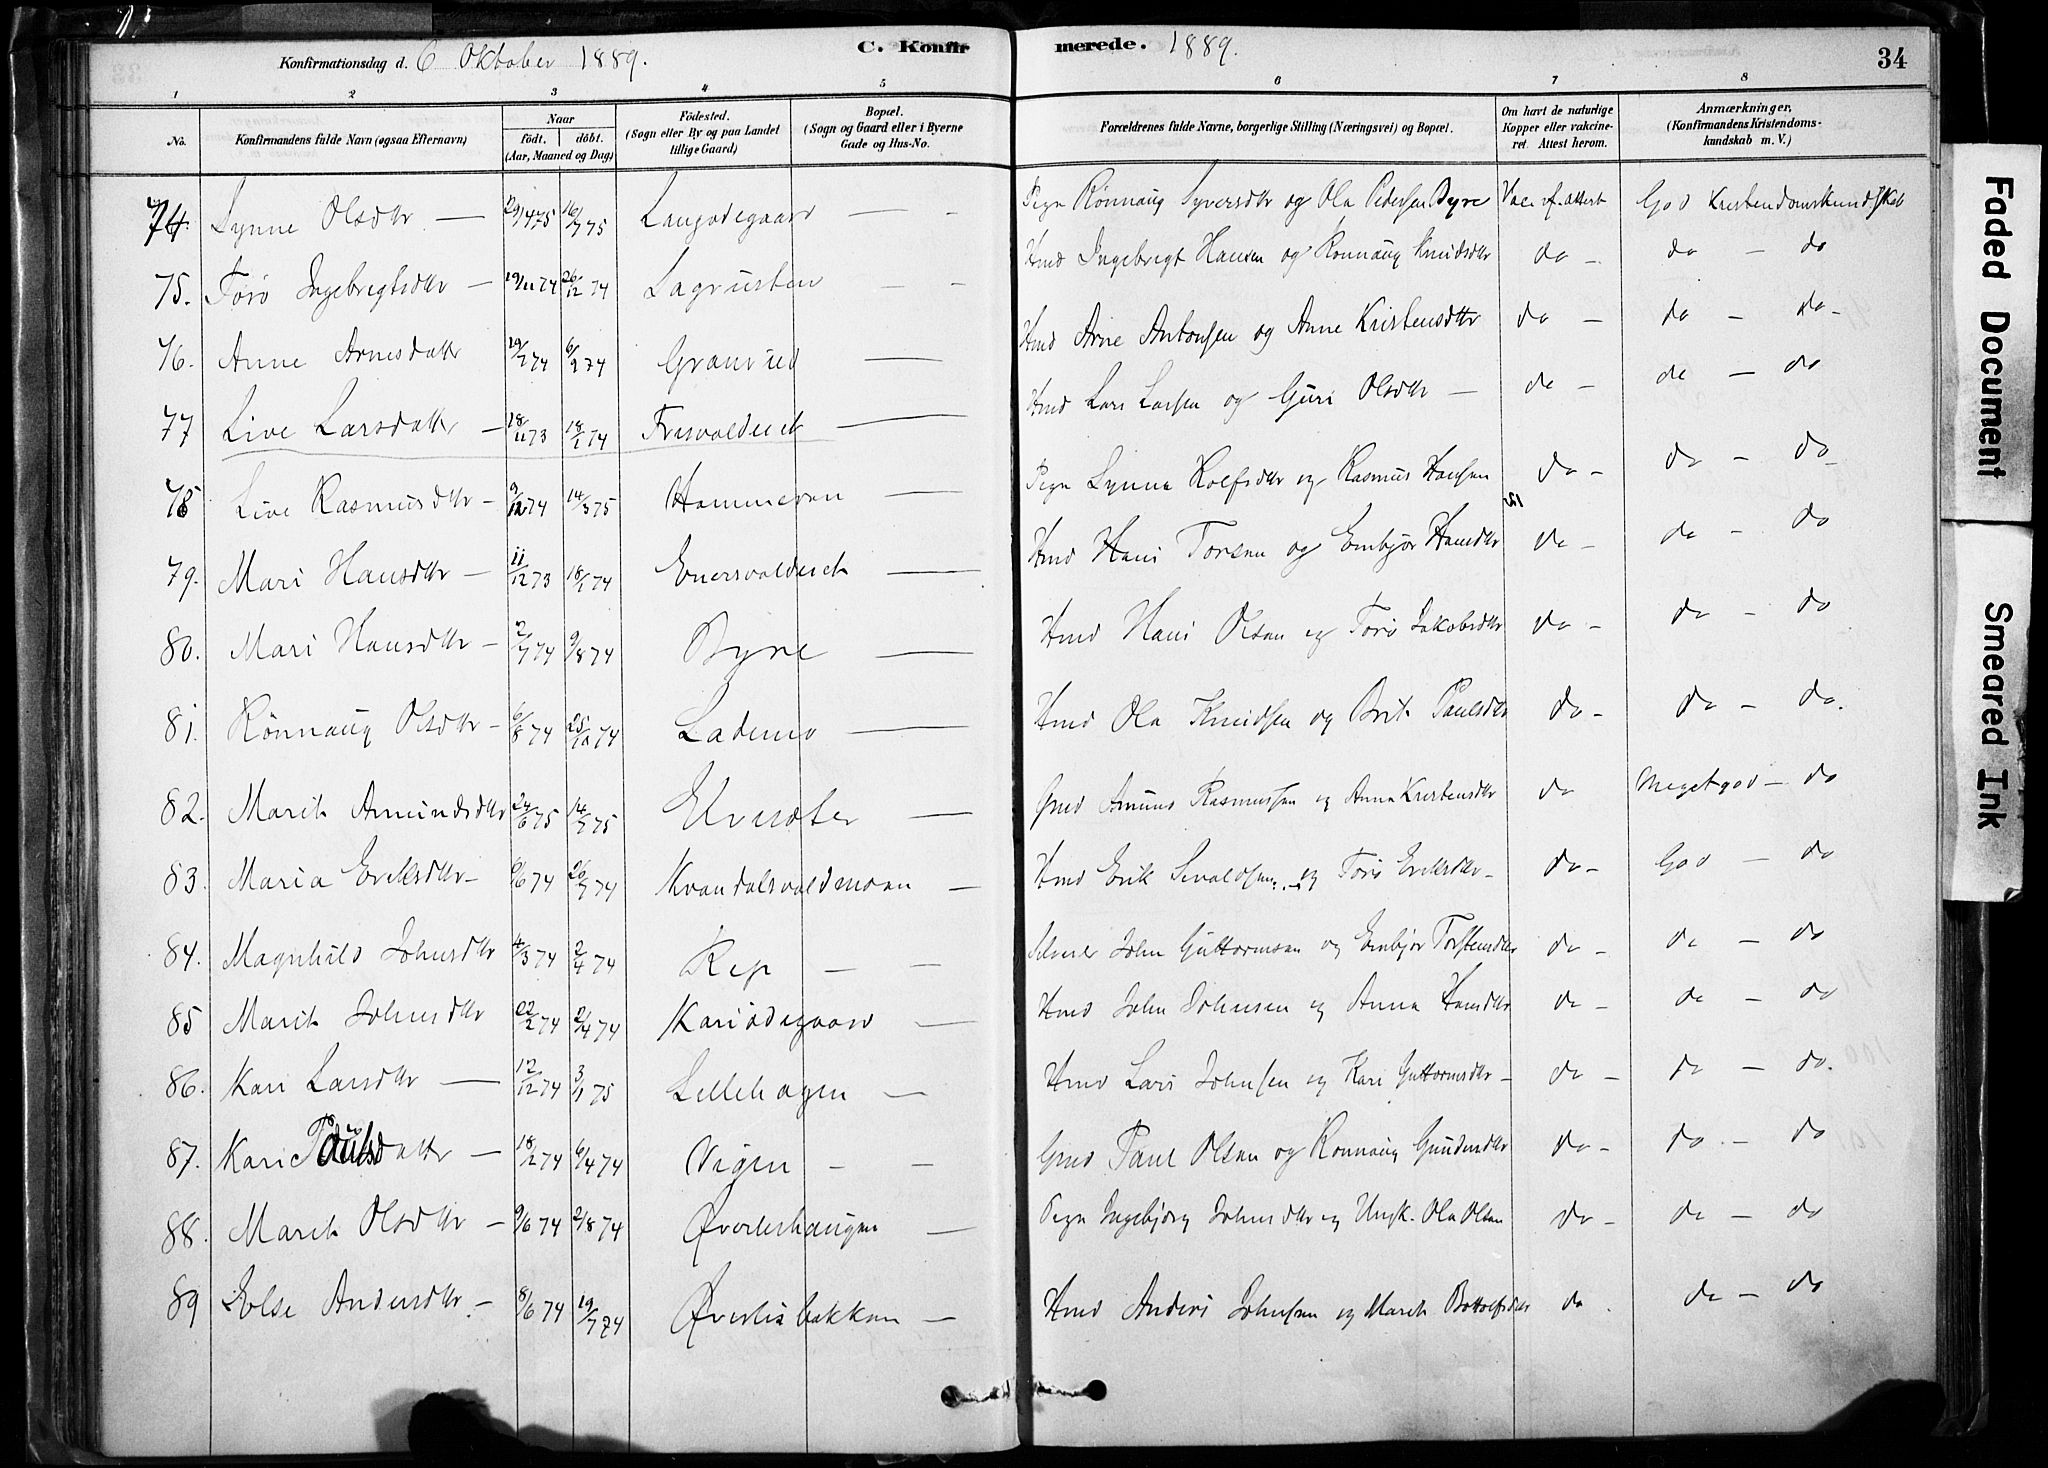 Konfirmationsdag d. 6 Oktober 1889. C. Konfirmerede. 1889. 34
1 2 3 4 5 6 7 8
No. Konfirmandens fulde Navn (ogsaa Efternavn) Naar Födt. döbt. (Aar, Maaned og Dag) Födested. (Sogn eller By og paa Landet tillige Gaard) Bopæl. (Sogn og Gaard eller i Byerne Gade og Hus-No. Forældrenes fulde Navne, borgerlige Stilling (Næringsvei) og Bopæl. Om havt de naturlige Kopper eller vakcineret. Attest herom. Anmærkninger, (Konfirmandens Kristendomskundskab m. V.)
74. Synne Olsdtr — 29/4 75 16/7 75 Langødegaard Pige Rönnaug Syversdtr og Ola Pedersen Byre Vac. if. attest God Kristendomskundskab
75. Torö Ingebrigtsdtr — 19/11 74 26/12 74 Lagrusten — — Hmd Ingebrigt Hansen og Ronnaug Knudsdtr do - do — do
76. Anne Arnesdatter 19/1 74 6/2 74 Granrud — Hmd Arne Antonsen og Anne Kristensdtr do — do — do -
77 Live Larsdatter — 18/11 73 18/1 74 Frisvoldeiet — Hmd Lars Larsen og Guri Olsdtr — do — do — do
78 Live Rasmusdtr — 9/12 74 14/3 75 Hammeren — Pige Synne Rolfsdtr og Rasmus Hansen do — do — do
79. Mari Hansdtr — 11/12 73 18/1 74 Enersvoldeiet — Hmd Hans Torsen og Embjör Hansdtr do — do — do
80. Mari Hansdtr — 2/7 74 9/8 74 Byre — Hmd Hans Olsen og Torö Jakobsdtr do — do — do
81. Rönnaug Olsdtr — 6/8 74 25/10 74 Lademo — Hmd Ola Knudsen og Brit Paulsdtr do — do — do.
82. Marit Amundsdtr 24/6 75 14/7 75 Elvesæter — Gmd Amund Rasmussen og Anne Kristensdtr do Meget god — do
83. Maria Eriksdtr — 9/6 74 26/7 74 Kvandalsvoldmoen — Hmd Erik Sivaldsen og Torö Eriksdtr — do — God — do
84. Magnhild Johnsdtr 4/3 74 2/4 74 Rep — — Selveier John Guttormsen og Embjör Torstensdtr do — do — do
85 Marit Johnsdtr 22/2 74 2/4 74 Kariødegaard — Hmd John Johnsen og Anna Hansdtr do — do — do
86. Kari Larsdtr — 12/12 74 3/1 75 Lillehagen — Hmd Lars Johnsen og Kari Guttormsdtr — do — do — do.
87. Kari Paulsdatter — 18/2 74 6/4 74 Vigen — — Gmd Paul Olsen og Ronnaug Gundersdtr do — do — do
88. Marit Olsdtr — 9/6 74 2/8 74 Øverlihaugen — Pige Ingebjörg Johnsdtr og Ungk. Ola Olsen do — do — do
89 Eolse Andersdtr. — 8/6 74 19/7 74 Øverlisbakken — Hmd Anders Johnsen og Marit Bottolfsdtr do do — do
Faded Document
Smeared Ink